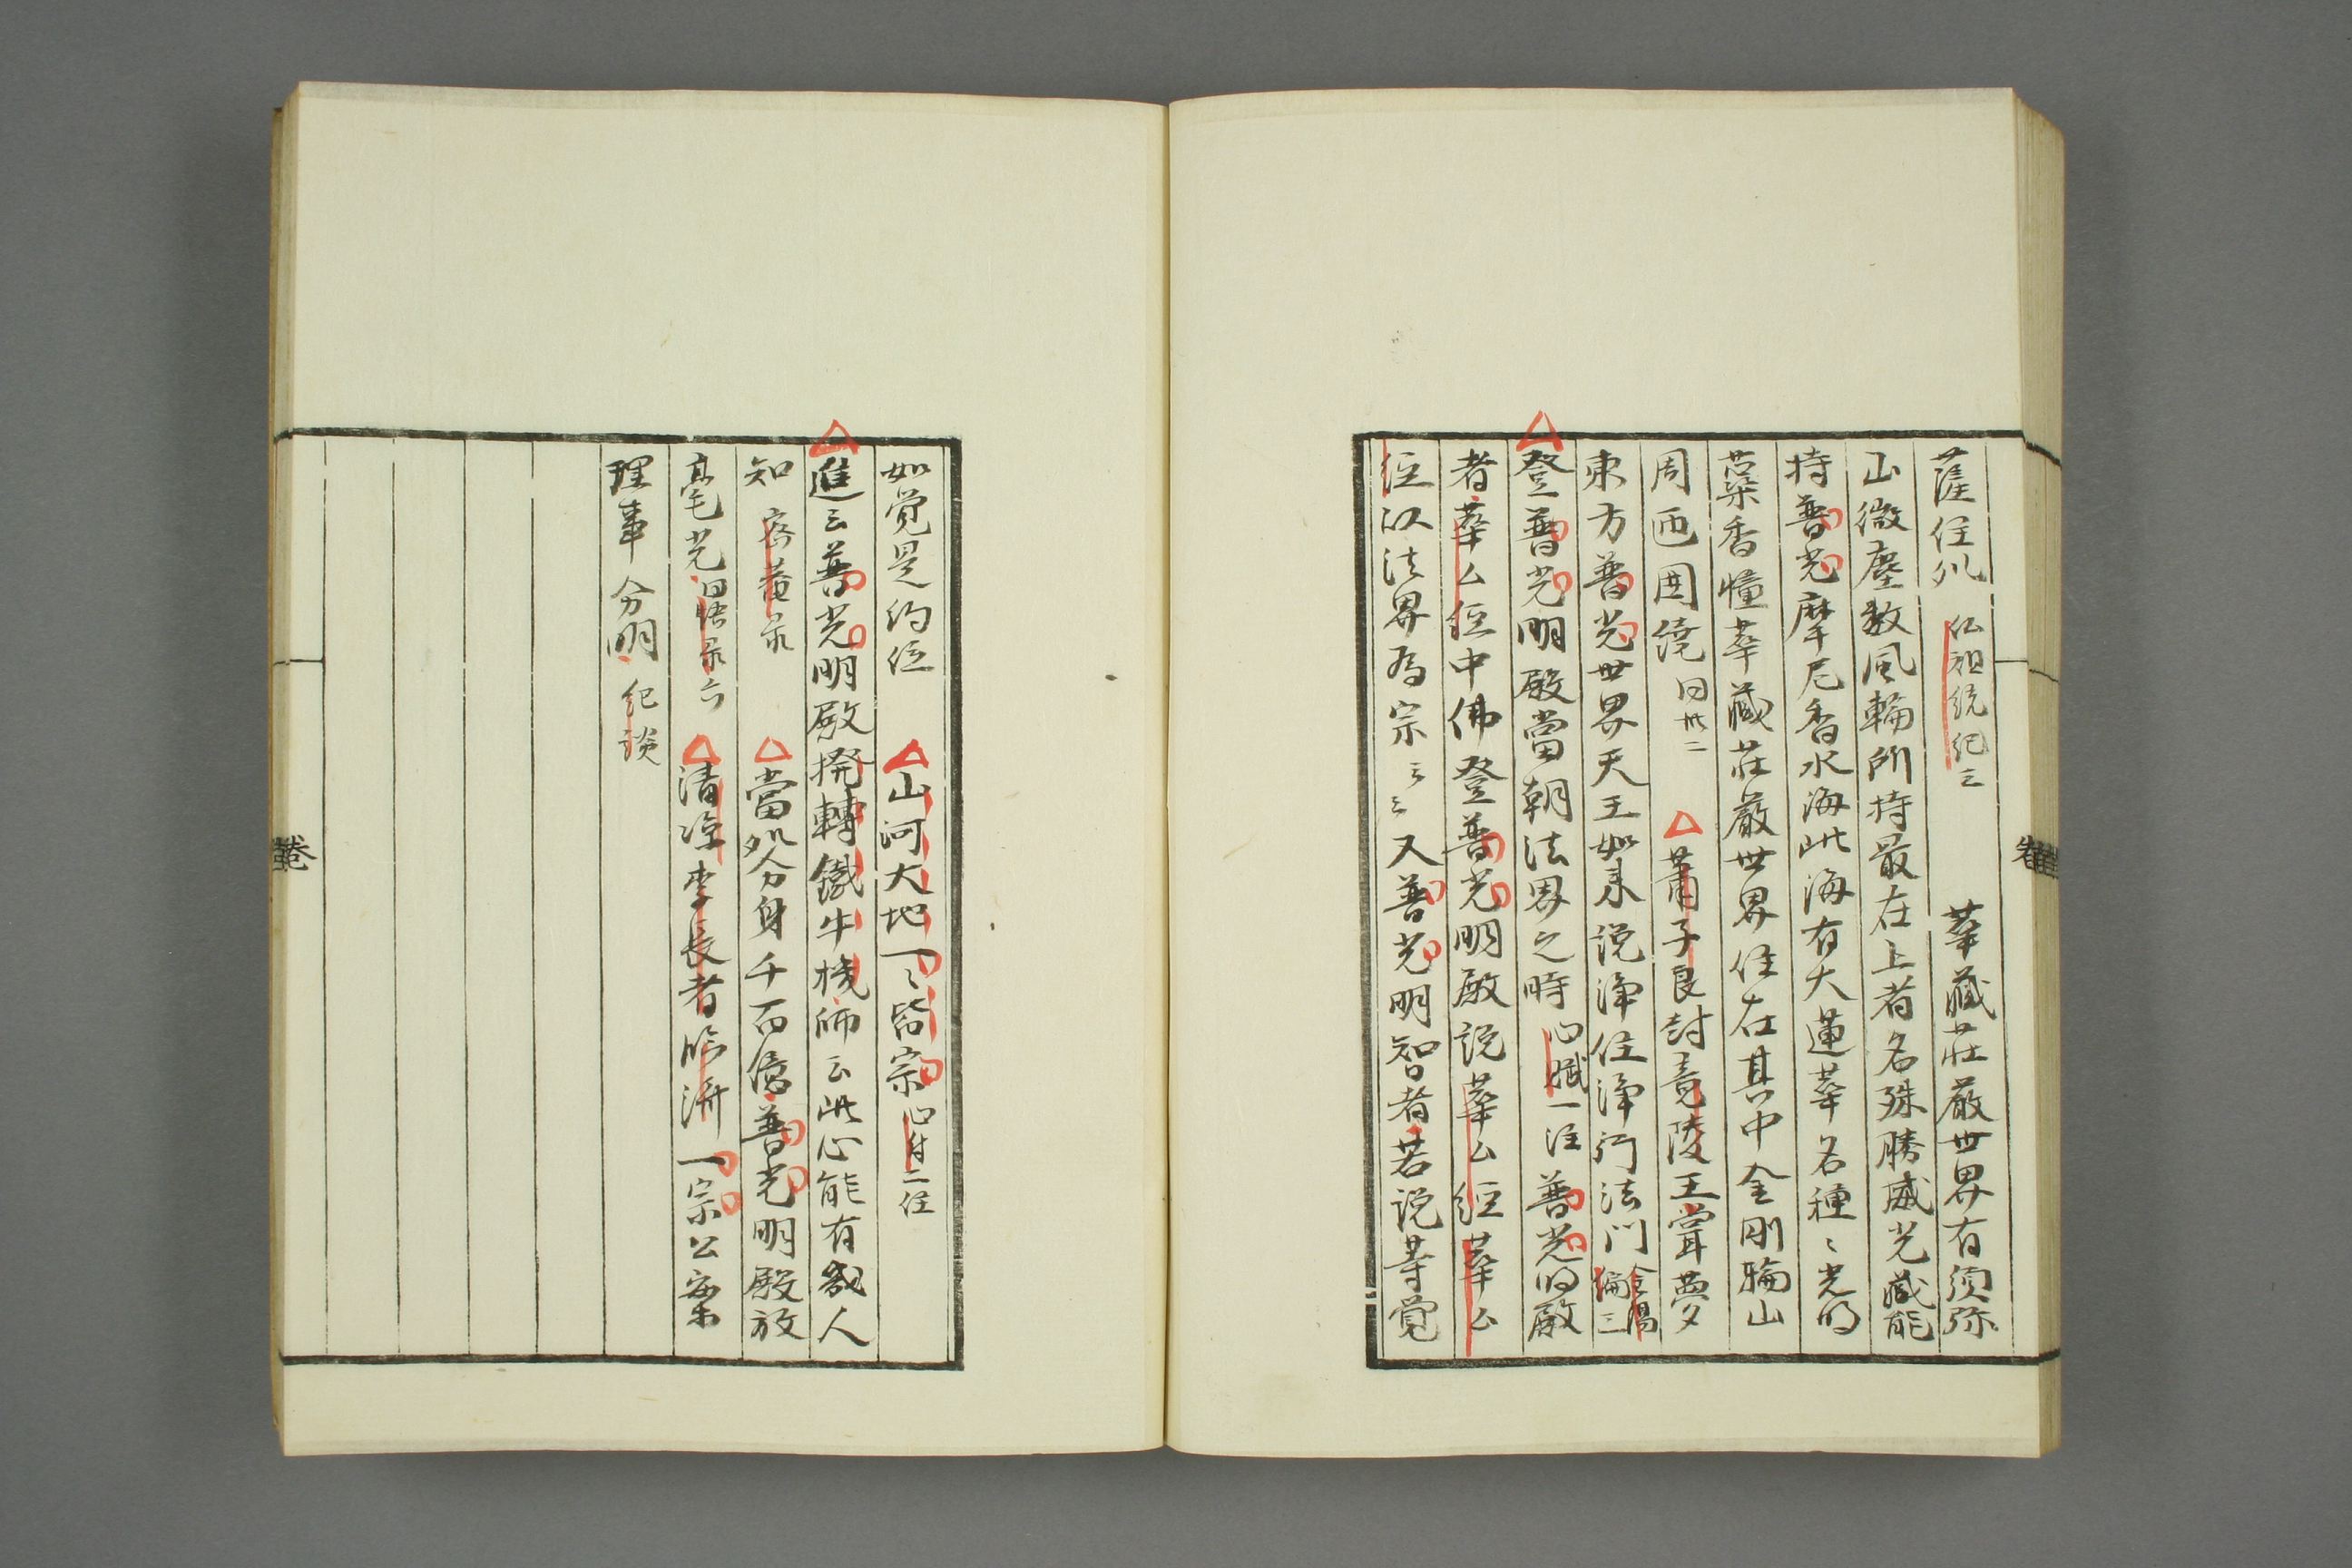 薩住処 仏祖統紀三 華藏莊嚴世界有須弥
山微塵数風輪所持最在上者名殊勝威光藏能
持普光摩尼香水海此海有大蓮華名種〻光明
蘂香幢華藏莊嚴世界住在其中金剛輪山
周匝囲繞 同卅二 △蕭子良封竟陵王甞夢
東方普光世界天王如来説浄住浄行法門 金湯編三
△登普光明殿當朝法界之時 心賦一注 普光明殿
者華ム経中佛登普光明殿説華ム経華ム
経以法界為宗云云又普光明智者若説等覚
如覚是約位 △山河大地一〻皆宗 心賦二注
△進云普光明殿撥轉鐵牛機師云此心能有幾人
知 密菴录 △當処分身千百億普光明殿放
毫光 旧悟录六 △清凉李長者臨濟一宗公案
理事分明 紀談
卷